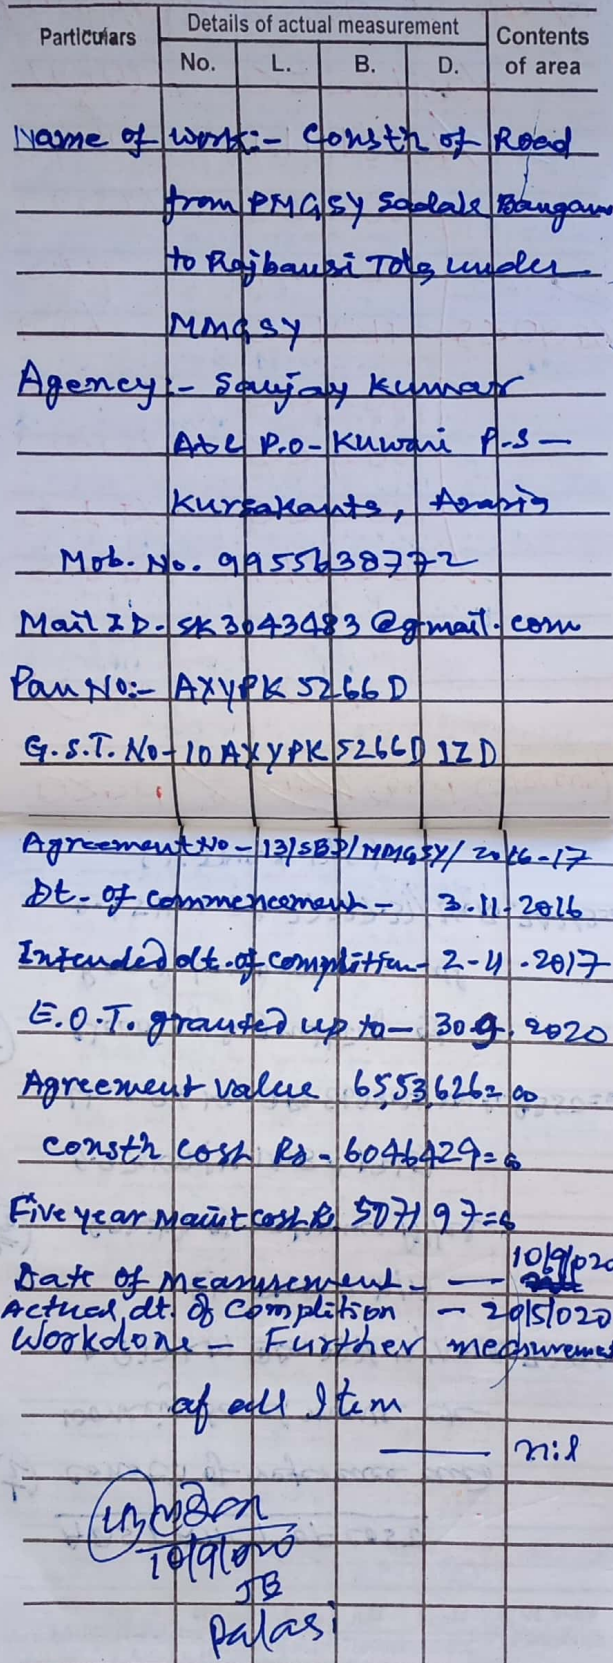 Particulars
Details of actual measurement
Contents of area
No. L. B. D.
Name of work:- Constn of Road
from PMGSY Sadak Bangawn
to Rajbansi Tola under
MMGSY
Agency:- Sanjay Kumar
At P.O- Kuwari P.S-
Kursakanta, Araria
Mob. No. 9955638772
Mail ID. SK3043483@gmail.com
Pan No:- AXYPK5266D
G.S.T. No-10AXYPK5266D1ZD
Agreement No-13/SBD/MMGSY/2016-17
Dt. of commencement - 3.11.2016
Intended dt. of complition- 2-11.2017
E.O.T. granted up to- 30.9.2020
Agreement value 6553626=00
Constn cost Rs- 6046429=00
Five year maint cost Rs 507197=00
Date of Measurement. — 10/9/020
Actual dt. of Complition - 20/5/020
Workdone - Further measurement
of all Item
— nil
10/9/020
JE
Palasi